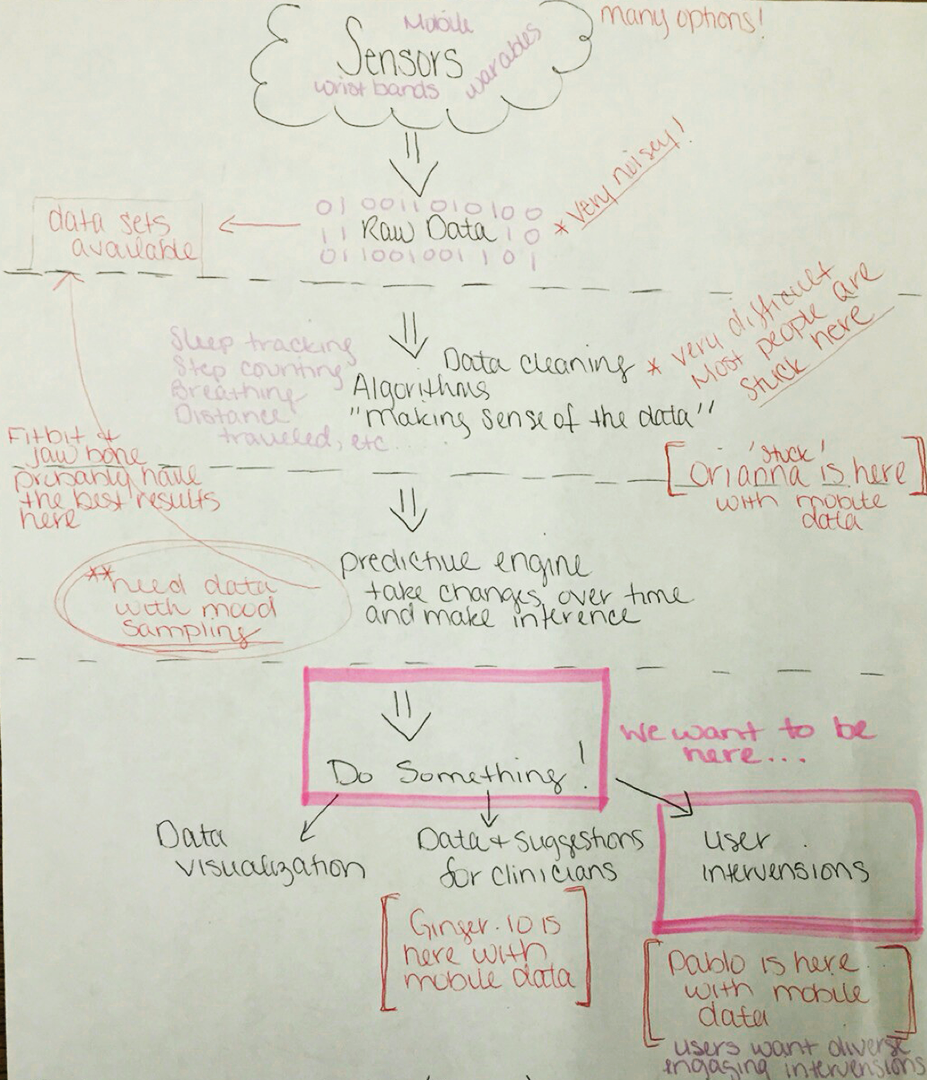 many options!
Mobile
Sensors
wrist bands
warables
01 0011 010100
11 Raw Data 10
011001001 101
* very noisey!
data sets
available
Sleep tracking
Step counting
Breathing
Distance
traveled, etc...
Data cleaning
Algorithms
"making sense of the data"
* very difficult
Most people are
stuck here
Fitbit +
jaw bone
probably have
the best results
here
'stuck'
[Orianna is here]
with mobile
data
predictive engine
take changes over time
and make inference
**need data
with mood
sampling
Do Something!
We want to be
here...
Data
visualization
Data + suggestions
for clinicians
user
intervensions
[Ginger.io is
here with
mobile data]
[Pablo is here
with mobile
data]
users want diverse
engaging intervensions